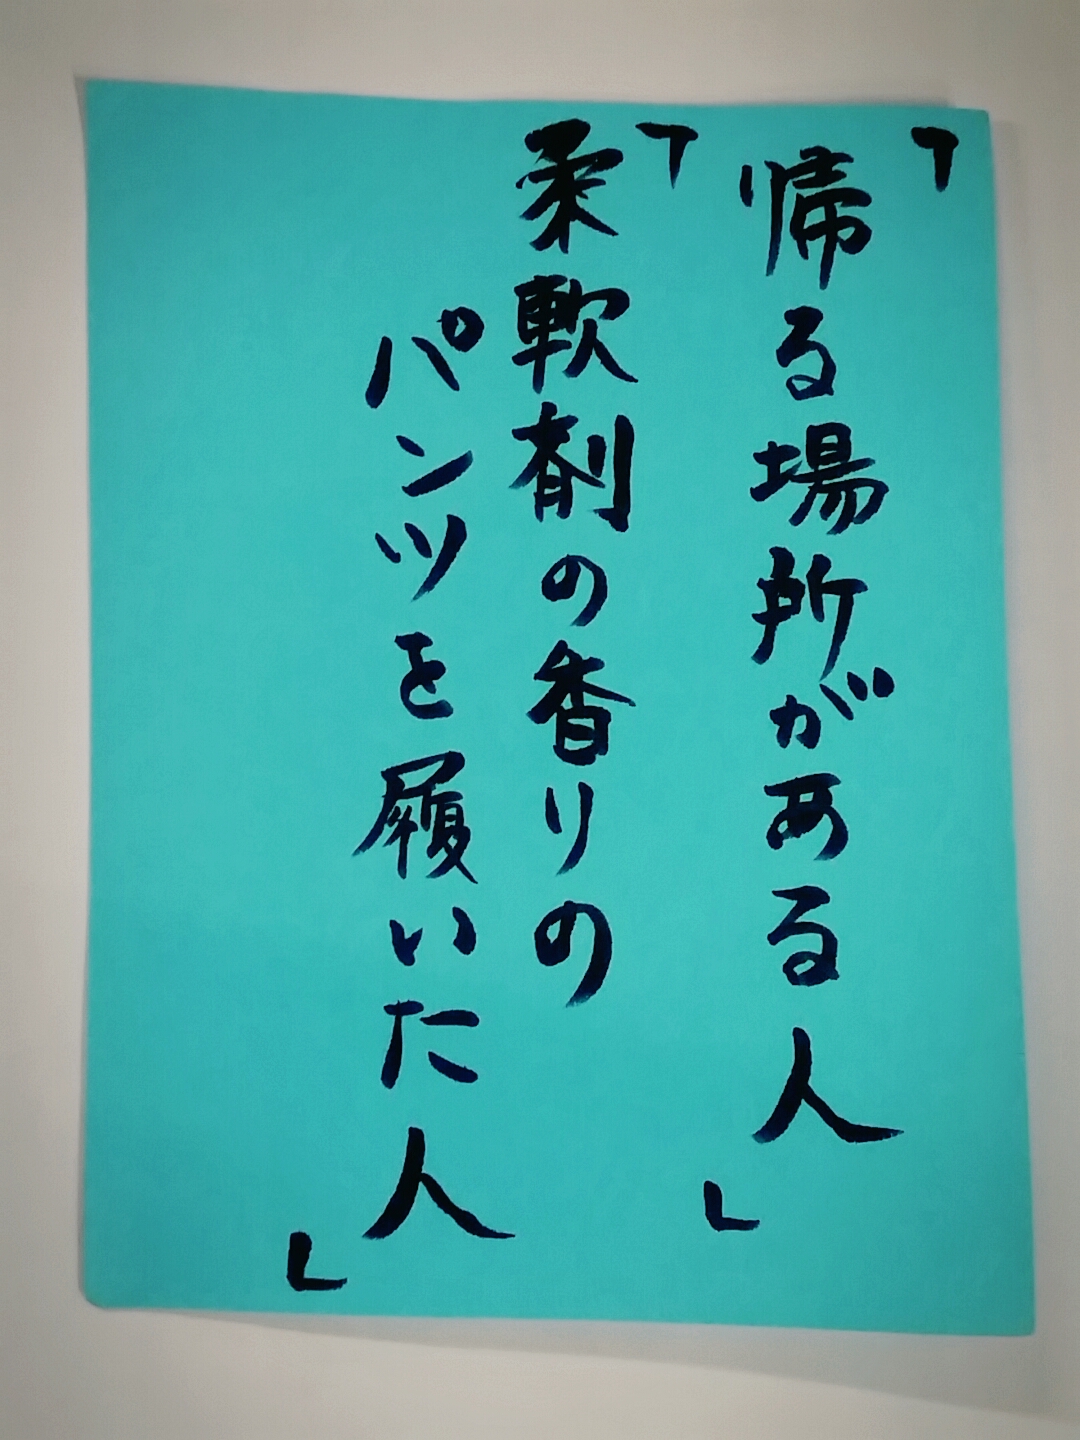 「帰る場所がある人」
「柔軟剤の香りの
パンツを履いた人」